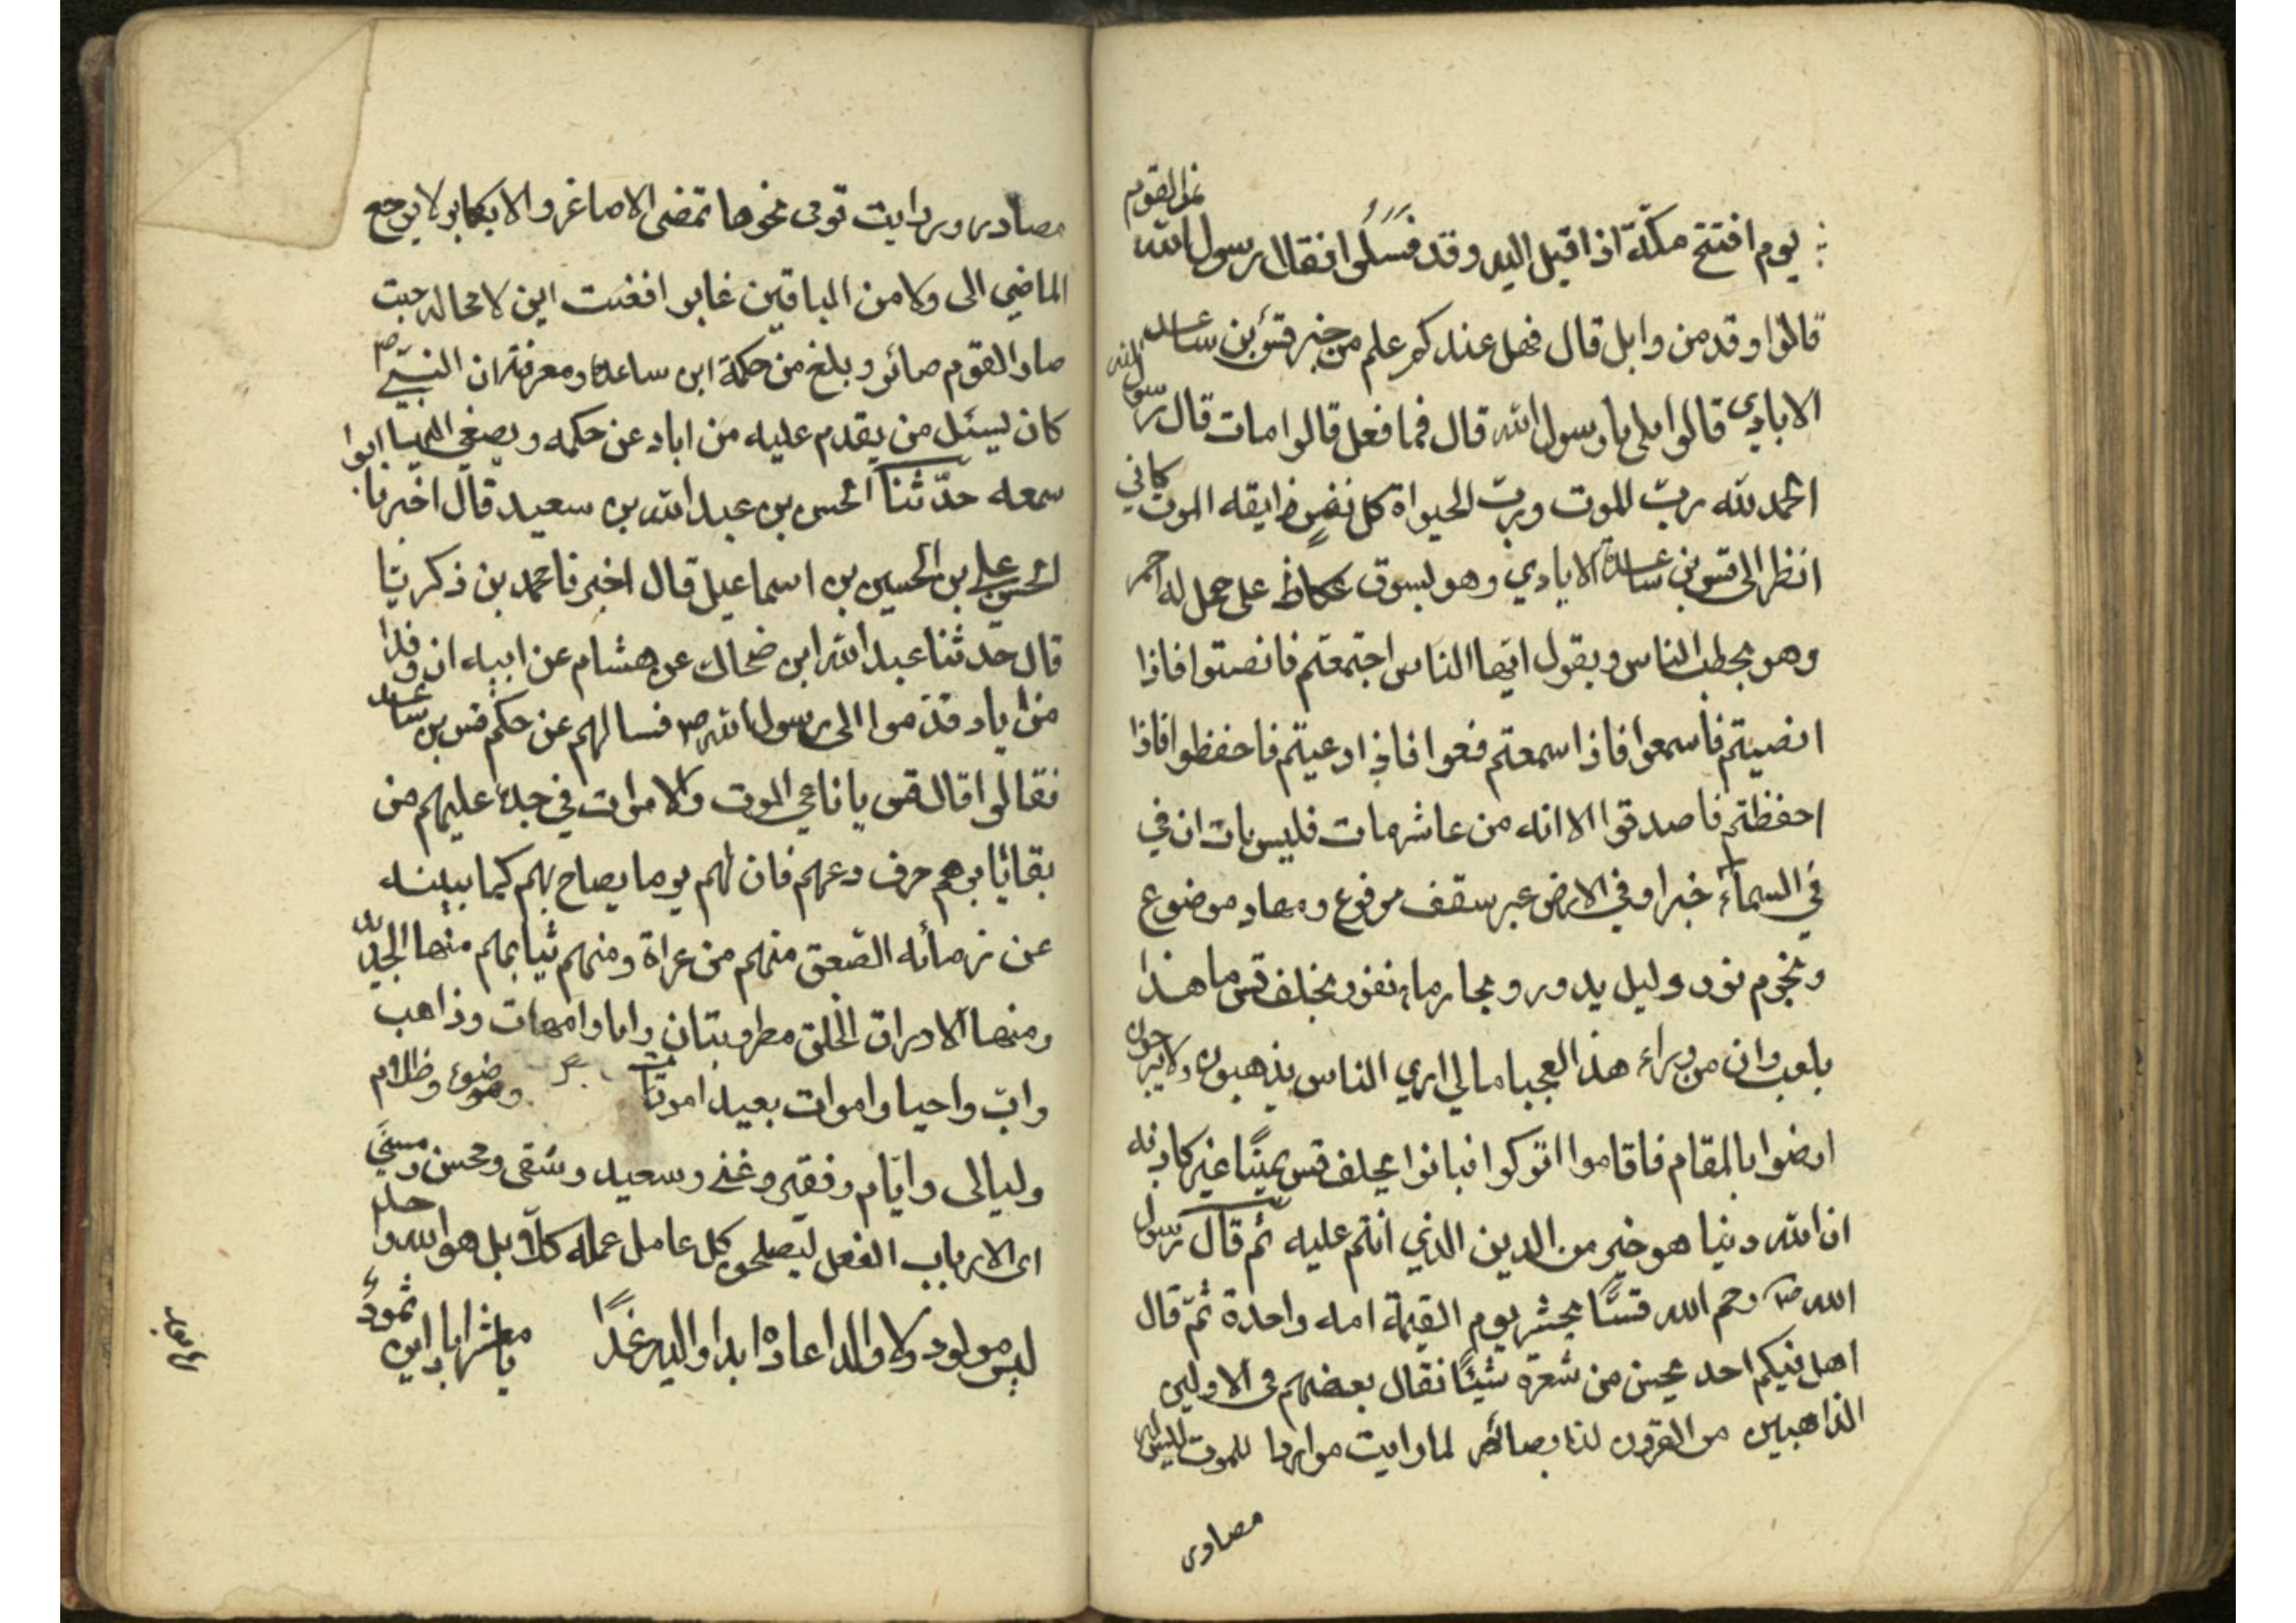 يوم افتتح مكة اذا اقبل اليه وقد فسلموا فقال رسول الله من القوم
قالوا وقد من وابل قال فهل عندكم علم من خبر قس بن ساعده
الابادي قالوا بلى يا رسول الله قال فما فعل قالوا مات قال رسول الله
الحمد لله رب الموت ورب الحيواة كل نفس ذايقه الموت كاني
انظر الى قس بن ساعدة الايادي وهو بسوق عكاظ على جمل له احمر
وهو يخطب الناس ويقول ايها الناس اجتمعتم فانصتوا فاذا
انصيتم فاسمعوا فاذا سمعتم فعوا فاذا دعيتم فاحفظوا فاذا
احفظتم فاصدقوا الا انه من عاش مات فليس بات ان في
في السماء خبرا وفي الارض عبر سقف مرفوع ومهاد موضوع
ونجوم نور وليل يدور وبحار ماء نفور يحلف قس ما هذا
بلعب وان من وراء هذ العجبا ما لي اري الناس يذهبون ولا يرجعون
ارضوا بالمقام فاقاموا اتوكوا فبانوا يحلف قس يمينا غير كاذبه
ان لله دنيا هو خير من الدين الذي انتم عليه ثم قال رسول
الله ص رحم الله قسا يحشر يوم القيمة امه واحدة ثم قال
اهل فيكم احد يحسن من شعره شيئا فقال بعضهم في الاولين
الذاهبين من القرون لنا بصائر لما رايت مواردا للموت ليس لها
مصادر
مصادر ورايت قومى نحوها تمضى الاصاغر والاكابر لا يرجع
الماضي الى ولا من الباقين غابر افغنت اين لا محاله حيث
صار القوم صائر وبلغ من حكمة ابن ساعدة ومعرفته ان النبي ص
كان يسئل من يقدم عليه من اباد عن حكمه ويصغي اليها ابوا
سمعه حدثنا الحسن بن عبد الله بن سعيد قال اخبرنا
علي بن الحسين بن اسماعيل قال اخبرنا محمد بن ذكريا
قال حدثنا عبد الله ابن ضحاك عن هشام عن ابيه ان وفدا
من اياد قدموا الى رسول الله ص فسالهم عن حكم قس بن ساعده
فقالوا قال قس يا ناعي الموت والاموات في جدث عليهم من
بقايا بزهم حرف دعهم فان لهم يوما يصاح بهم كما ببينه
عن نرمائه الصعق منهم من عراة ومنهم ثيابهم منها الجديد
ومنها الادراق الخلق مطر ونبتان واباوامهات وذاهب
وات واحيا واموات بعيد اموتات وضوء وظلام
وليالى وايام وفقير وغني وسعيد وشقى ومحسن ومسيئ
اى الارباب الفعل ليصلحن كل عامل عمله كلا بل هو الله واحد
ليس مولود ولا والدا عاده ابدا واليه غدا يا معشر اباد اين ثمود